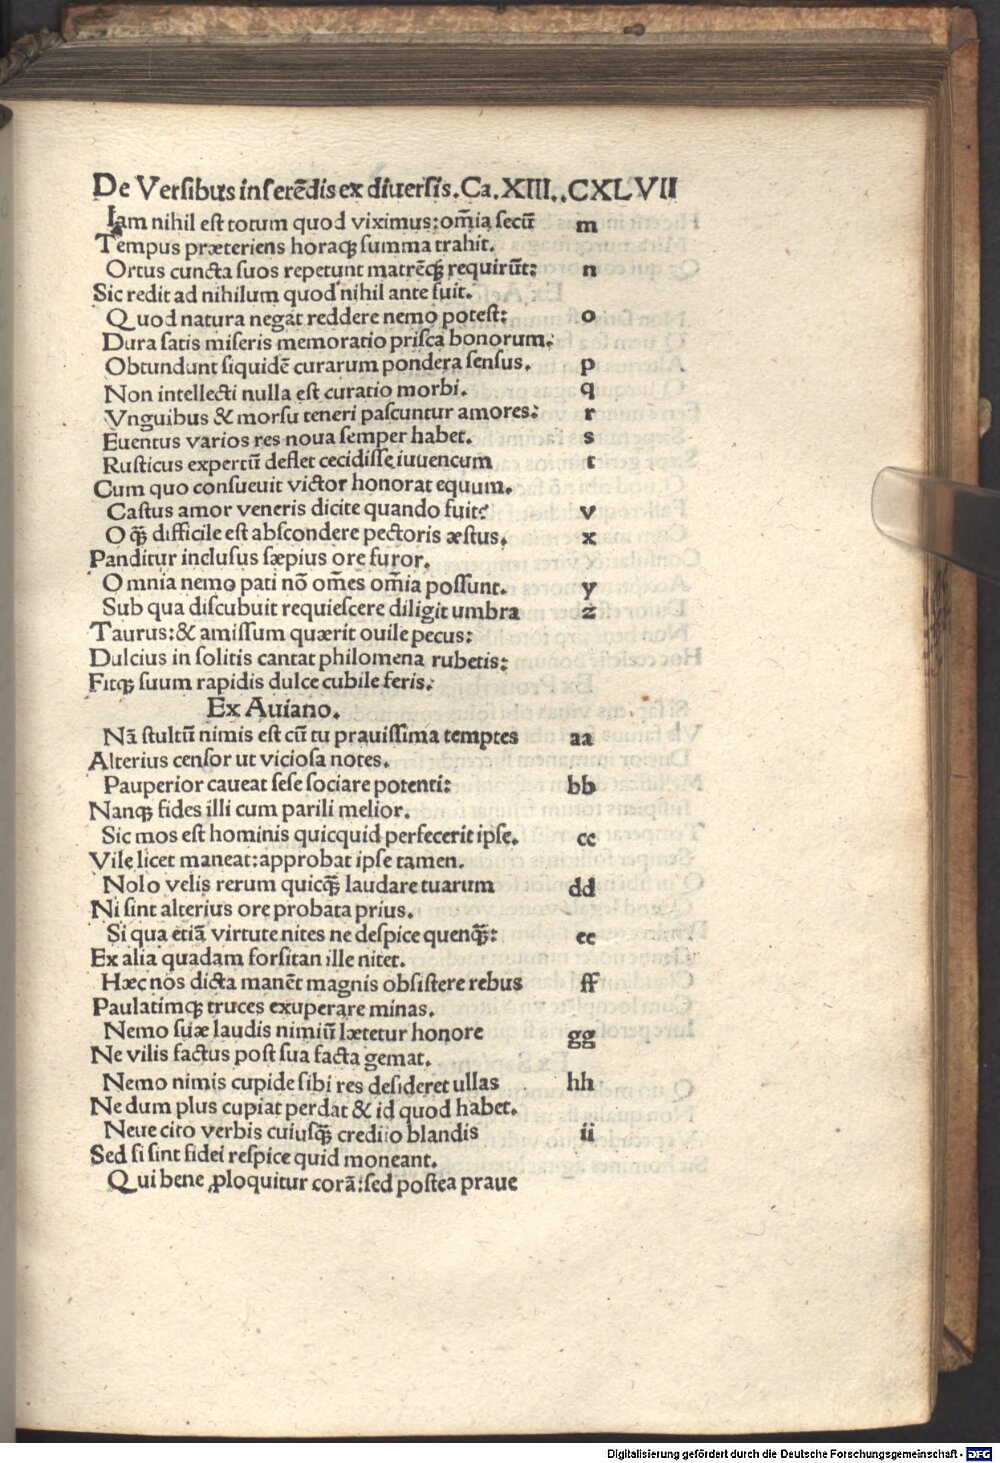 De Verſibus inſerēdis ex diuerſis. Ca. XIII. . CXLVII
Iam nihil eſt totum quod viximus: om̄ia ſecū m
Tempus præteriens horaqꝫ ſumma trahit.
Ortus cuncta ſuos repetunt matrēcꝫ requirūt: n
Sic redit ad nihilum quod nihil ante fuit.
Quod natura negat reddere nemo poteſt: o
Dura ſatis miſeris memoratio priſca bonorum:
Obtundunt ſiquidē curarum pondera ſenſus. p
Non intellecti nulla eſt curatio morbi. q
Vnguibus & morſu teneri paſcuntur amores: r
Euentus varios res noua ſemper habet. s
Ruſticus expertū deflet cecidiſſe iuuencum t
Cum quo conſueuit victor honorat equum.
Caſtus amor veneris dicite quando fuit? v
O qꝫ̄ difficile eſt abſcondere pectoris æſtus. x
Panditur incluſus ſæpius ore furor.
Omnia nemo pati nō om̄es om̄ia poſſunt. y
Sub qua diſcubuit requieſcere diligit umbra z
Taurus: & amiſſum quærit ouile pecus:
Dulcius in ſolitis cantat philomena rubetis:
Fitqꝫ ſuum rapidis dulce cubile feris.
Ex Auiano.
Nā ſtultū nimis eſt cū tu prauiſſima temptes aa
Alterius cenſor ut vicioſa notes.
Pauperior caueat ſeſe ſociare potenti: bb
Nanqꝫ fides illi cum parili melior.
Sic mos eſt hominis quicquid perfecerit ipſe. cc
Vile licet maneat: approbat ipſe tamen.
Nolo velis rerum quicqꝫ̄ laudare tuarum dd
Ni ſint alterius ore probata prius.
Si qua etiā virtute nites ne deſpice quenqꝫ̄: ee
Ex alia quadam forſitan ille nitet.
Hæc nos dicta manēt magnis obſiſtere rebus ff
Paulatimqꝫ truces exuperare minas.
Nemo ſuæ laudis nimiū lætetur honore gg
Ne vilis factus poſt ſua facta gemat.
Nemo nimis cupide ſibi res deſideret ullas hh
Ne dum plus cupiat perdat & id quod habet.
Neue cito verbis cuiuſqꝫ̄ credito blandis ii
Sed ſi ſint fidei reſpice quid moneant.
Qui bene ꝓloquitur corā: ſed poſtea praue
Digitalisierung gefördert durch die Deutsche Forschungsgemeinschaft - DFG